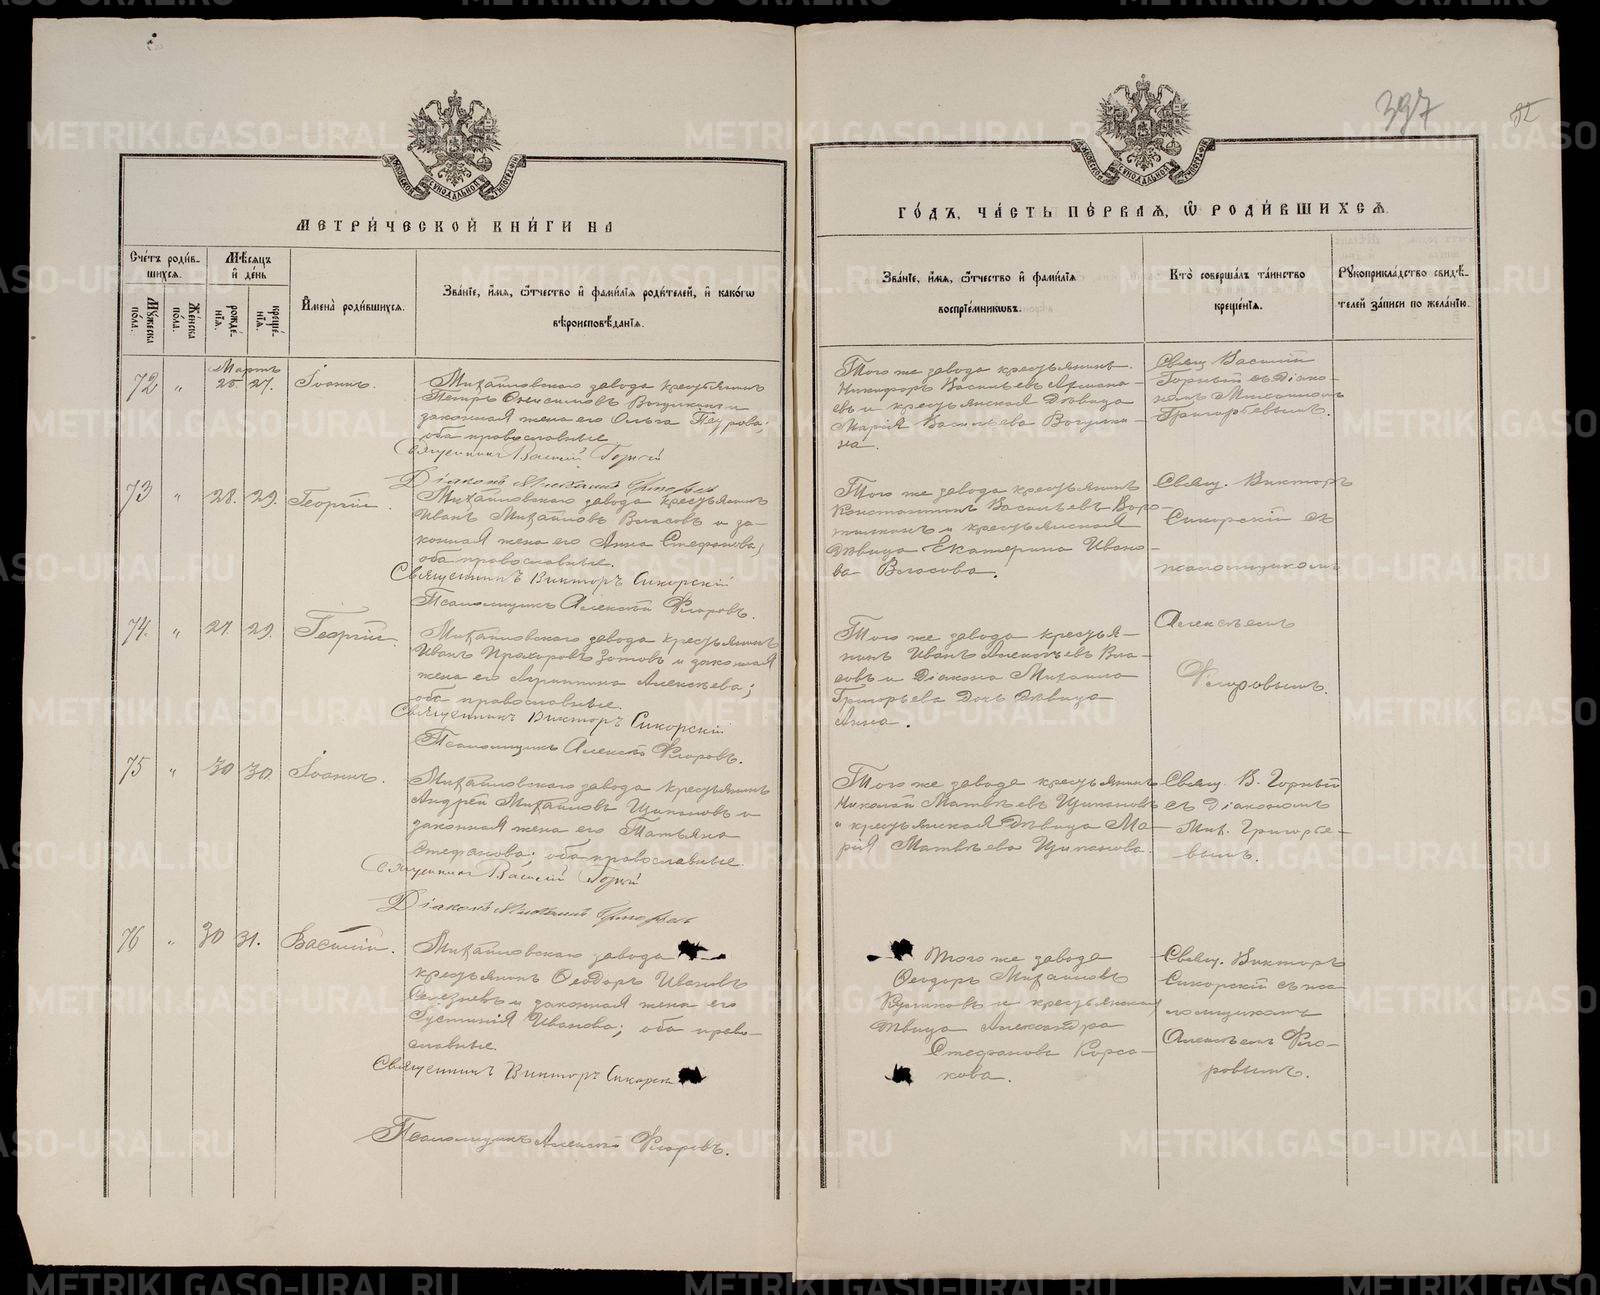 397
82
МЕТРИ́ЧЕСКОЙ КНИ́ГИ НА
ГО́ДЪ, ЧА́СТЬ ПЕ́РВАЯ, Ѡ РОДИ́ВШИХСЯ.
Сче́тъ роди́в-
шихся.
Му́жеска по́ла.
Же́нска по́ла.
Мѣ́сяцъ
и де́нь
рожде́-
нїя.
креще́-
нїя.
И́мена роди́вшихся.
Зва́нїе, и́мя, ѻ҆́тчество и фами́лїя роди́телей, и како́гѡ
вѣроисповѣ́данїя.
Зва́нїе, и́мя, ѻ҆́тчество и фами́лїя
воспрїе́мникѡвъ.
Кто̀ соверша́лъ та́инство
креще́нїя.
Рꙋкоприкла́дство свидѣ́-
телей за́писи по жела́нїю.
Мартъ
72 " 25 27. Іоаннъ.
Михайловскаго завода крестьянинъ
Петръ Онисимовъ Вогулкинъ и
законная жена его Ольга Петрова;
оба православные
Священникъ Василій Горный
Діаконъ Михаилъ Григорьевъ
Того же завода крестьянинъ
Никифоръ Васильевъ
въ и крестьянская дѣвица
Марія Васильева Вогулки-
на.
Свящ. Василій
Горный съ діако-
номъ Михаиломъ
Григорьевымъ.
73 " 28. 29. Георгій.
Михайловскаго завода крестьянинъ
Иванъ Михайловъ Власовъ и за-
конная жена его Анна Стефанова;
оба православные.
Священникъ Викторъ Сикорскій
Псаломщикъ Алексѣй Флоровъ.
Того же завода крестьянинъ
Константинъ Васильевъ Воро-
и крестьянская
дѣвица Екатерина Ивано-
ва Власова.
Свящ. Викторъ
Сикорскій съ
псаломщикомъ
74. " 27. 29. Георгій.
Михайловскаго завода крестьянинъ
Иванъ Прохоровъ Зотовъ и законная
жена его Агриппина Алексѣева;
оба православные.
Священникъ Викторъ Сикорскій
Псаломщикъ Алексѣй Флоровъ.
Того же завода крестья-
нинъ Иванъ Алексѣевъ Вла-
совъ и діакона Михаила
Григорьева дочь дѣвица
Анна.
Алексѣемъ
Флоровымъ.
75 " 30 30. Іоаннъ.
Михайловскаго завода крестьянинъ
Андрей Михайловъ Щипановъ и
законная жена его Татьяна
Стефанова; оба православные.
Священникъ Василій Горный
Діаконъ Михаилъ Григорьевъ
Того же завода крестьянинъ
Николай Матвѣевъ Щипановъ
и крестьянская дѣвица Ма-
рія Матвѣева Щипанова.
Свящ. В. Горный
съ діакономъ
Мих. Григорье-
вымъ.
76 " 30 31. Василій.
Михайловскаго завода
крестьянинъ Ѳеодоръ Ивановъ
Селезневъ и законная жена его
Густинія Иванова; оба право-
славные.
Священникъ Викторъ Сикорскій
Псаломщикъ Алексѣй Флоровъ.
Того же завода
Ѳеодоръ Михайловъ
Куликовъ и крестьянская
дѣвица Александра
Стефанова Корса-
кова.
Свящ. Викторъ
Сикорскій съ пса-
ломщикомъ
Алексѣемъ Фло-
ровымъ.
METRIKI.GASO-URAL.RU